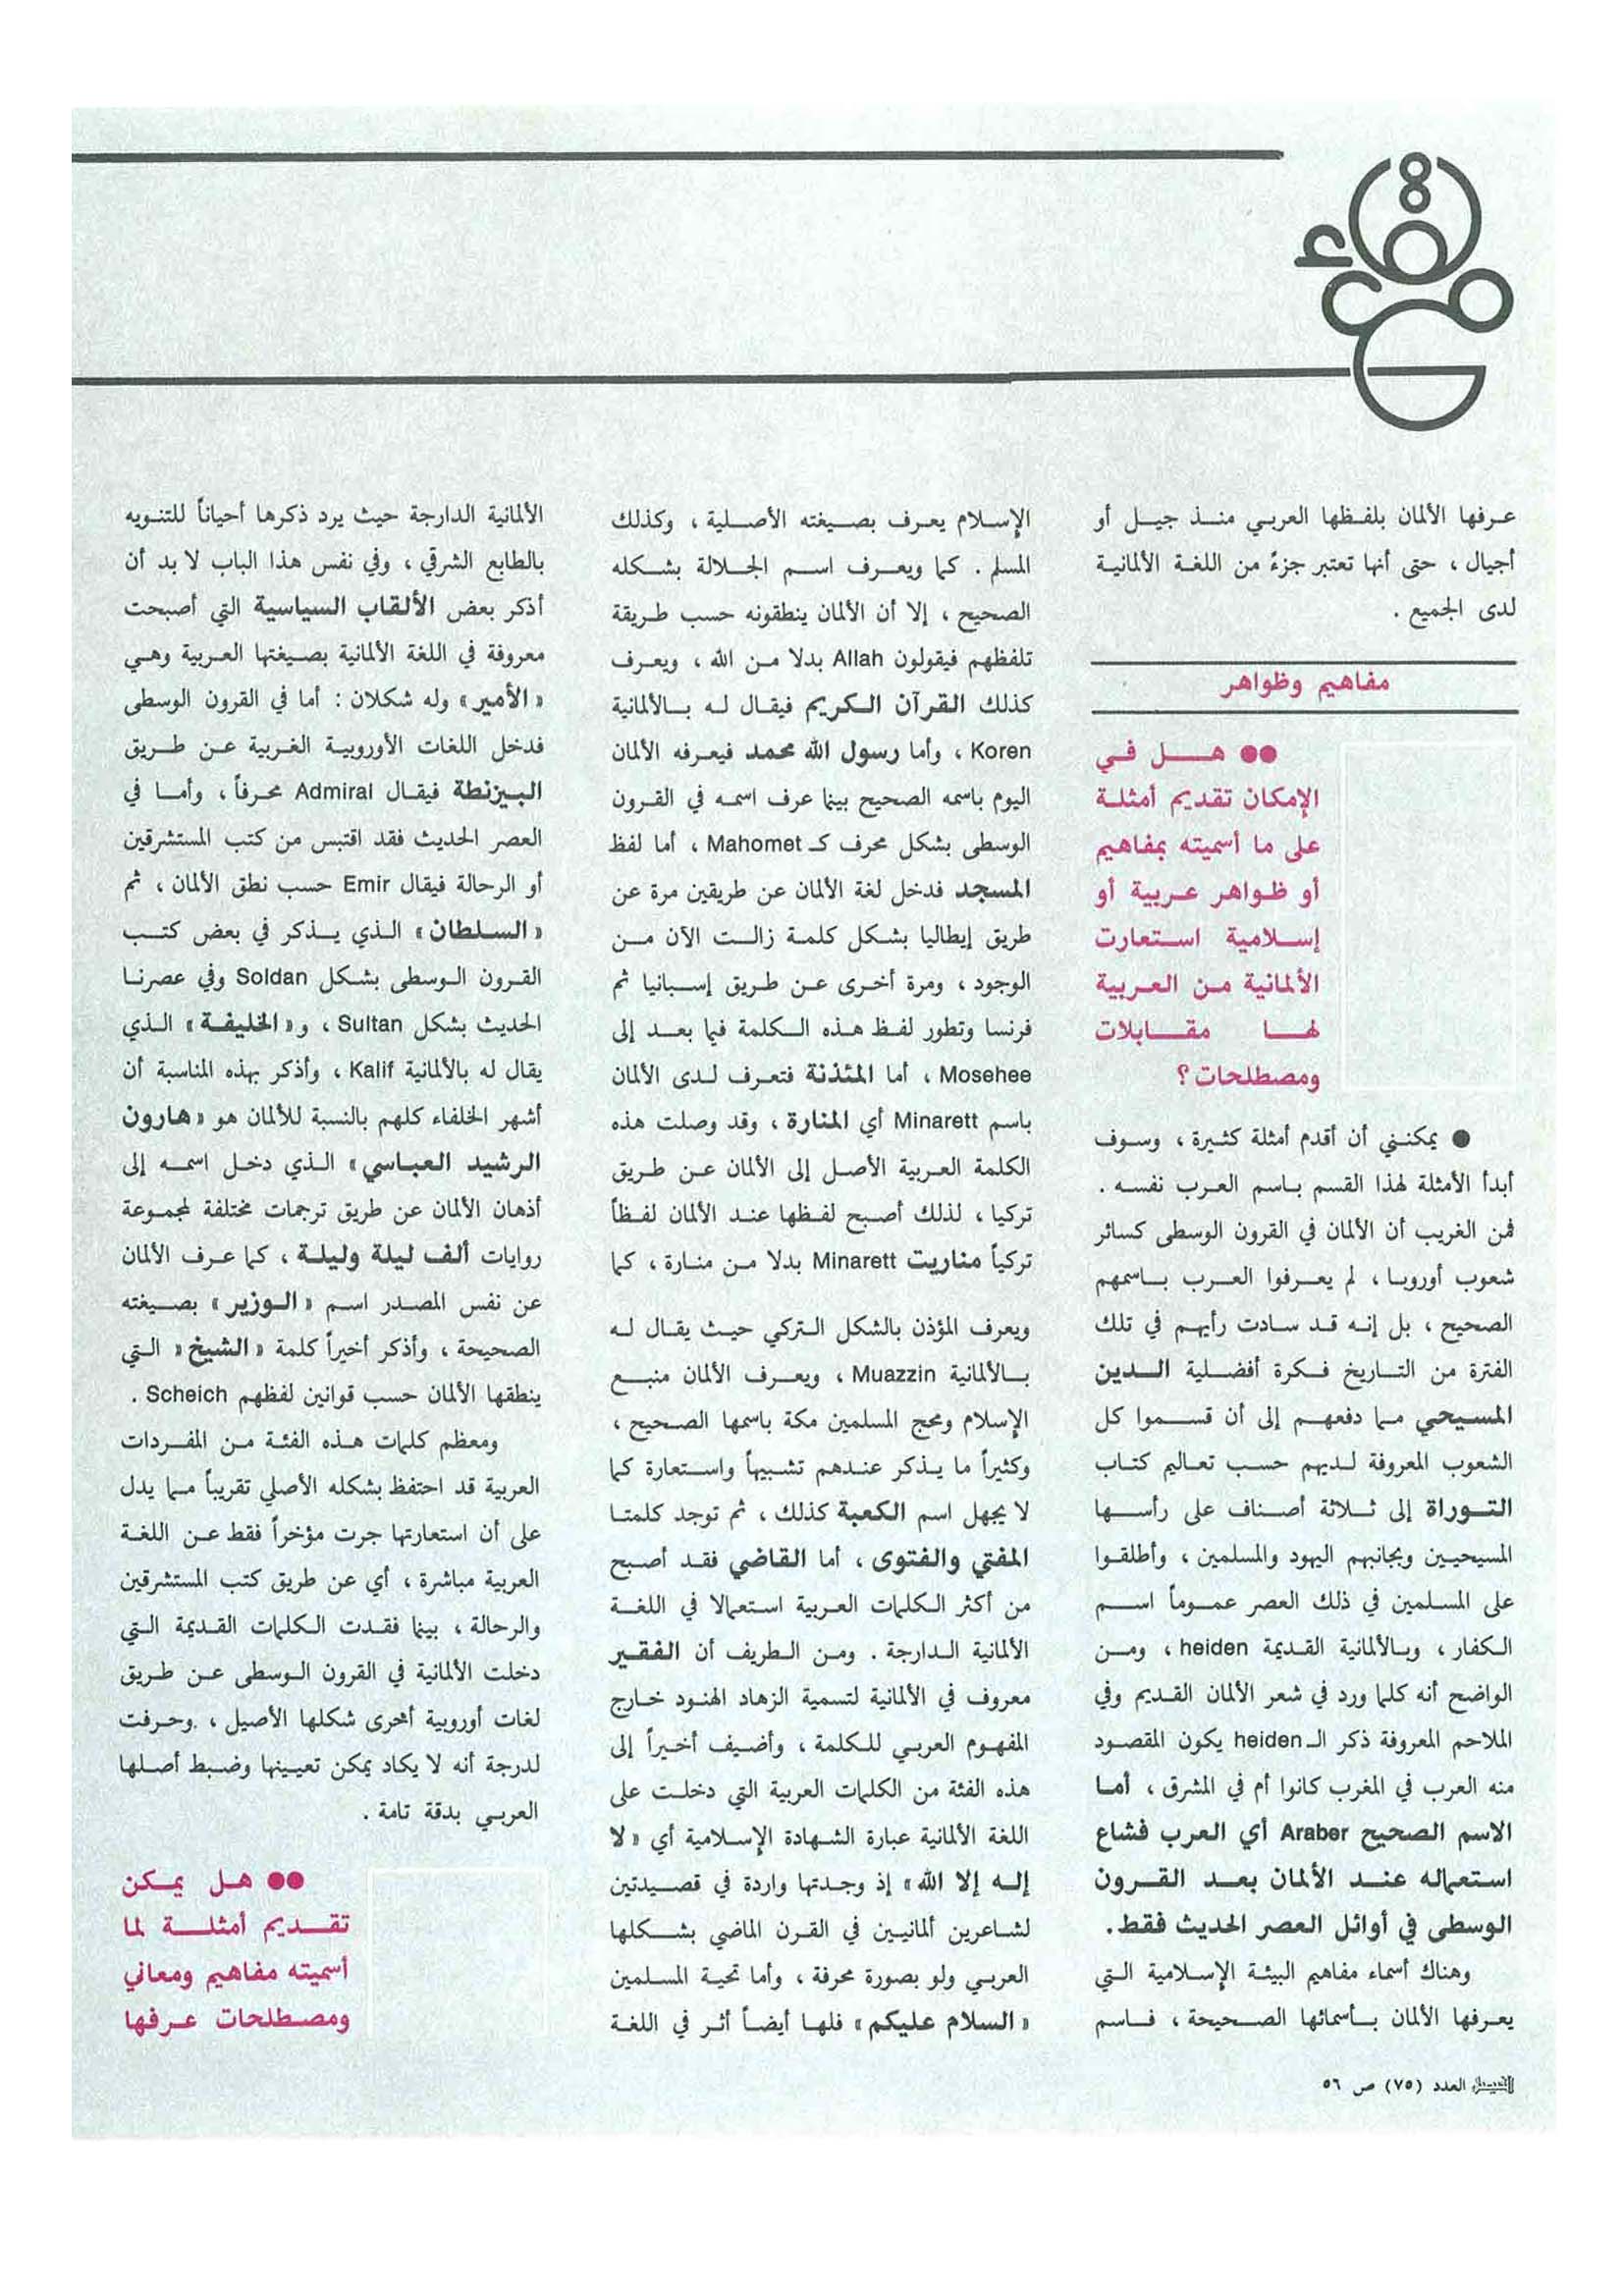 عرفها الألمان بلفظها العربي منذ جيل أو
أجيال ، حتى أنها تعتبر جزءً من اللغة الألمانية
لدى الجميع .
مفاهيم وظواهر
●● هل في
الإمكان تقديم أمثلة
على ما أسميته بمفاهيم
أو ظواهر عربية أو
إسلامية استعارت
الألمانية من العربية
لها مقابلات
ومصطلحات ؟
● يمكنني أن أقدم أمثلة كثيرة ، وسوف
أبدأ الأمثلة لهذا القسم باسم العرب نفسه .
فمن الغريب أن الألمان في القرون الوسطى كسائر
شعوب أوروبا ، لم يعرفوا العرب باسمهم
الصحيح ، بل إنه قد سادت رأيهم في تلك
الفترة من التاريخ فكرة أفضلية الدين
المسيحي مما دفعهم إلى أن قسموا كل
الشعوب المعروفة لديهم حسب تعاليم كتاب
التوراة إلى ثلاثة أصناف على رأسها
المسيحيين وبجانبهم اليهود والمسلمين ، وأطلقوا
على المسلمين في ذلك العصر عموماً اسم
الكفار ، وبالألمانية القديمة heiden ، ومن
الواضح أنه كلما ورد في شعر الألمان القديم وفي
الملاحم المعروفة ذكر الـ heiden يكون المقصود
منه العرب في المغرب كانوا أم في المشرق ، أما
الاسم الصحيح Araber أي العرب فشاع
استعماله عند الألمان بعد القرون
الوسطى في أوائل العصر الحديث فقط .
وهناك أسماء مفاهيم البيئة الإسلامية التي
يعرفها الألمان بأسمائها الصحيحة ، فاسم
الإسلام يعرف بصيغته الأصلية ، وكذلك
المسلم . كما ويعرف اسم الجلالة بشكله
الصحيح ، إلا أن الألمان ينطقونه حسب طريقة
تلفظهم فيقولون Allah بدلا من الله ، ويعرف
كذلك القرآن الكريم فيقال له بالألمانية
Koren ، وأما رسول الله محمد فيعرفه الألمان
اليوم باسمه الصحيح بينما عرف اسمه في القرون
الوسطى بشكل محرف كـ Mahomet ، أما لفظ
المسجد فدخل لغة الألمان عن طريقين مرة عن
طريق إيطاليا بشكل كلمة زالت الآن من
الوجود ، ومرة أخرى عن طريق إسبانيا ثم
فرنسا وتطور لفظ هذه الكلمة فيما بعد إلى
Mosehee ، أما المئذنة فتعرف لدى الألمان
باسم Minarett أي المنارة ، وقد وصلت هذه
الكلمة العربية الأصل إلى الألمان عن طريق
تركيا ، لذلك أصبح لفظها عند الألمان لفظاً
تركياً مناريت Minarett بدلا من منارة ، كما
ويعرف المؤذن بالشكل التركي حيث يقال له
بالألمانية Muazzin ، ويعرف الألمان منبع
الإسلام ومحج المسلمين مكة باسمها الصحيح ،
وكثيراً ما يذكر عندهم تشبيهاً واستعارة كما
لا يجهل اسم الكعبة كذلك ، ثم توجد كلمتا
المفتي والفتوى ، أما القاضي فقد أصبح
من أكثر الكلمات العربية استعمالا في اللغة
الألمانية الدارجة . ومن الطريف أن الفقير
معروف في الألمانية لتسمية الزهاد الهنود خارج
المفهوم العربي للكلمة ، وأضيف أخيراً إلى
هذه الفئة من الكلمات العربية التي دخلت على
اللغة الألمانية عبارة الشهادة الإسلامية أي « لا
إله إلا الله » إذ وجدتها واردة في قصيدتين
لشاعرين ألمانيين في القرن الماضي بشكلها
العربي ولو بصورة محرفة ، وأما تحية المسلمين
« السلام عليكم » فلها أيضاً أثر في اللغة
الألمانية الدارجة حيث يرد ذكرها أحياناً للتنويه
بالطابع الشرقي ، وفي نفس هذا الباب لا بد أن
أذكر بعض الألقاب السياسية التي أصبحت
معروفة في اللغة الألمانية بصيغتها العربية وهي
« الأمير » وله شكلان : أما في القرون الوسطى
فدخل اللغات الأوروبية الغربية عن طريق
البيزنطة فيقال Admiral محرفاً ، وأما في
العصر الحديث فقد اقتبس من كتب المستشرقين
أو الرحالة فيقال Emir حسب نطق الألمان ، ثم
« السلطان » الذي يذكر في بعض كتب
القرون الوسطى بشكل Soldan وفي عصرنا
الحديث بشكل Sultan ، و« الخليفة » الذي
يقال له بالألمانية Kalif ، وأذكر بهذه المناسبة أن
أشهر الخلفاء كلهم بالنسبة للألمان هو « هارون
الرشيد العباسي » الذي دخل اسمه إلى
أذهان الألمان عن طريق ترجمات مختلفة لمجموعة
روايات ألف ليلة وليلة ، كما عرف الألمان
عن نفس المصدر اسم « الوزير » بصيغته
الصحيحة ، وأذكر أخيراً كلمة « الشيخ » التي
ينطقها الألمان حسب قوانين لفظهم Scheich .
ومعظم كلمات هذه الفئة من المفردات
العربية قد احتفظ بشكله الأصلي تقريباً مما يدل
على أن استعارتها جرت مؤخراً فقط عن اللغة
العربية مباشرة ، أي عن طريق كتب المستشرقين
والرحالة ، بينما فقدت الكلمات القديمة التي
دخلت الألمانية في القرون الوسطى عن طريق
لغات أوروبية أخرى شكلها الأصيل ، وحرفت
لدرجة أنه لا يكاد يمكن تعيينها وضبط أصلها
العربي بدقة تامة .
●● هل يمكن
تقديم أمثلة لما
أسميته مفاهيم ومعاني
ومصطلحات عرفها
الفيصل العدد (٧٥) ص ٥٦